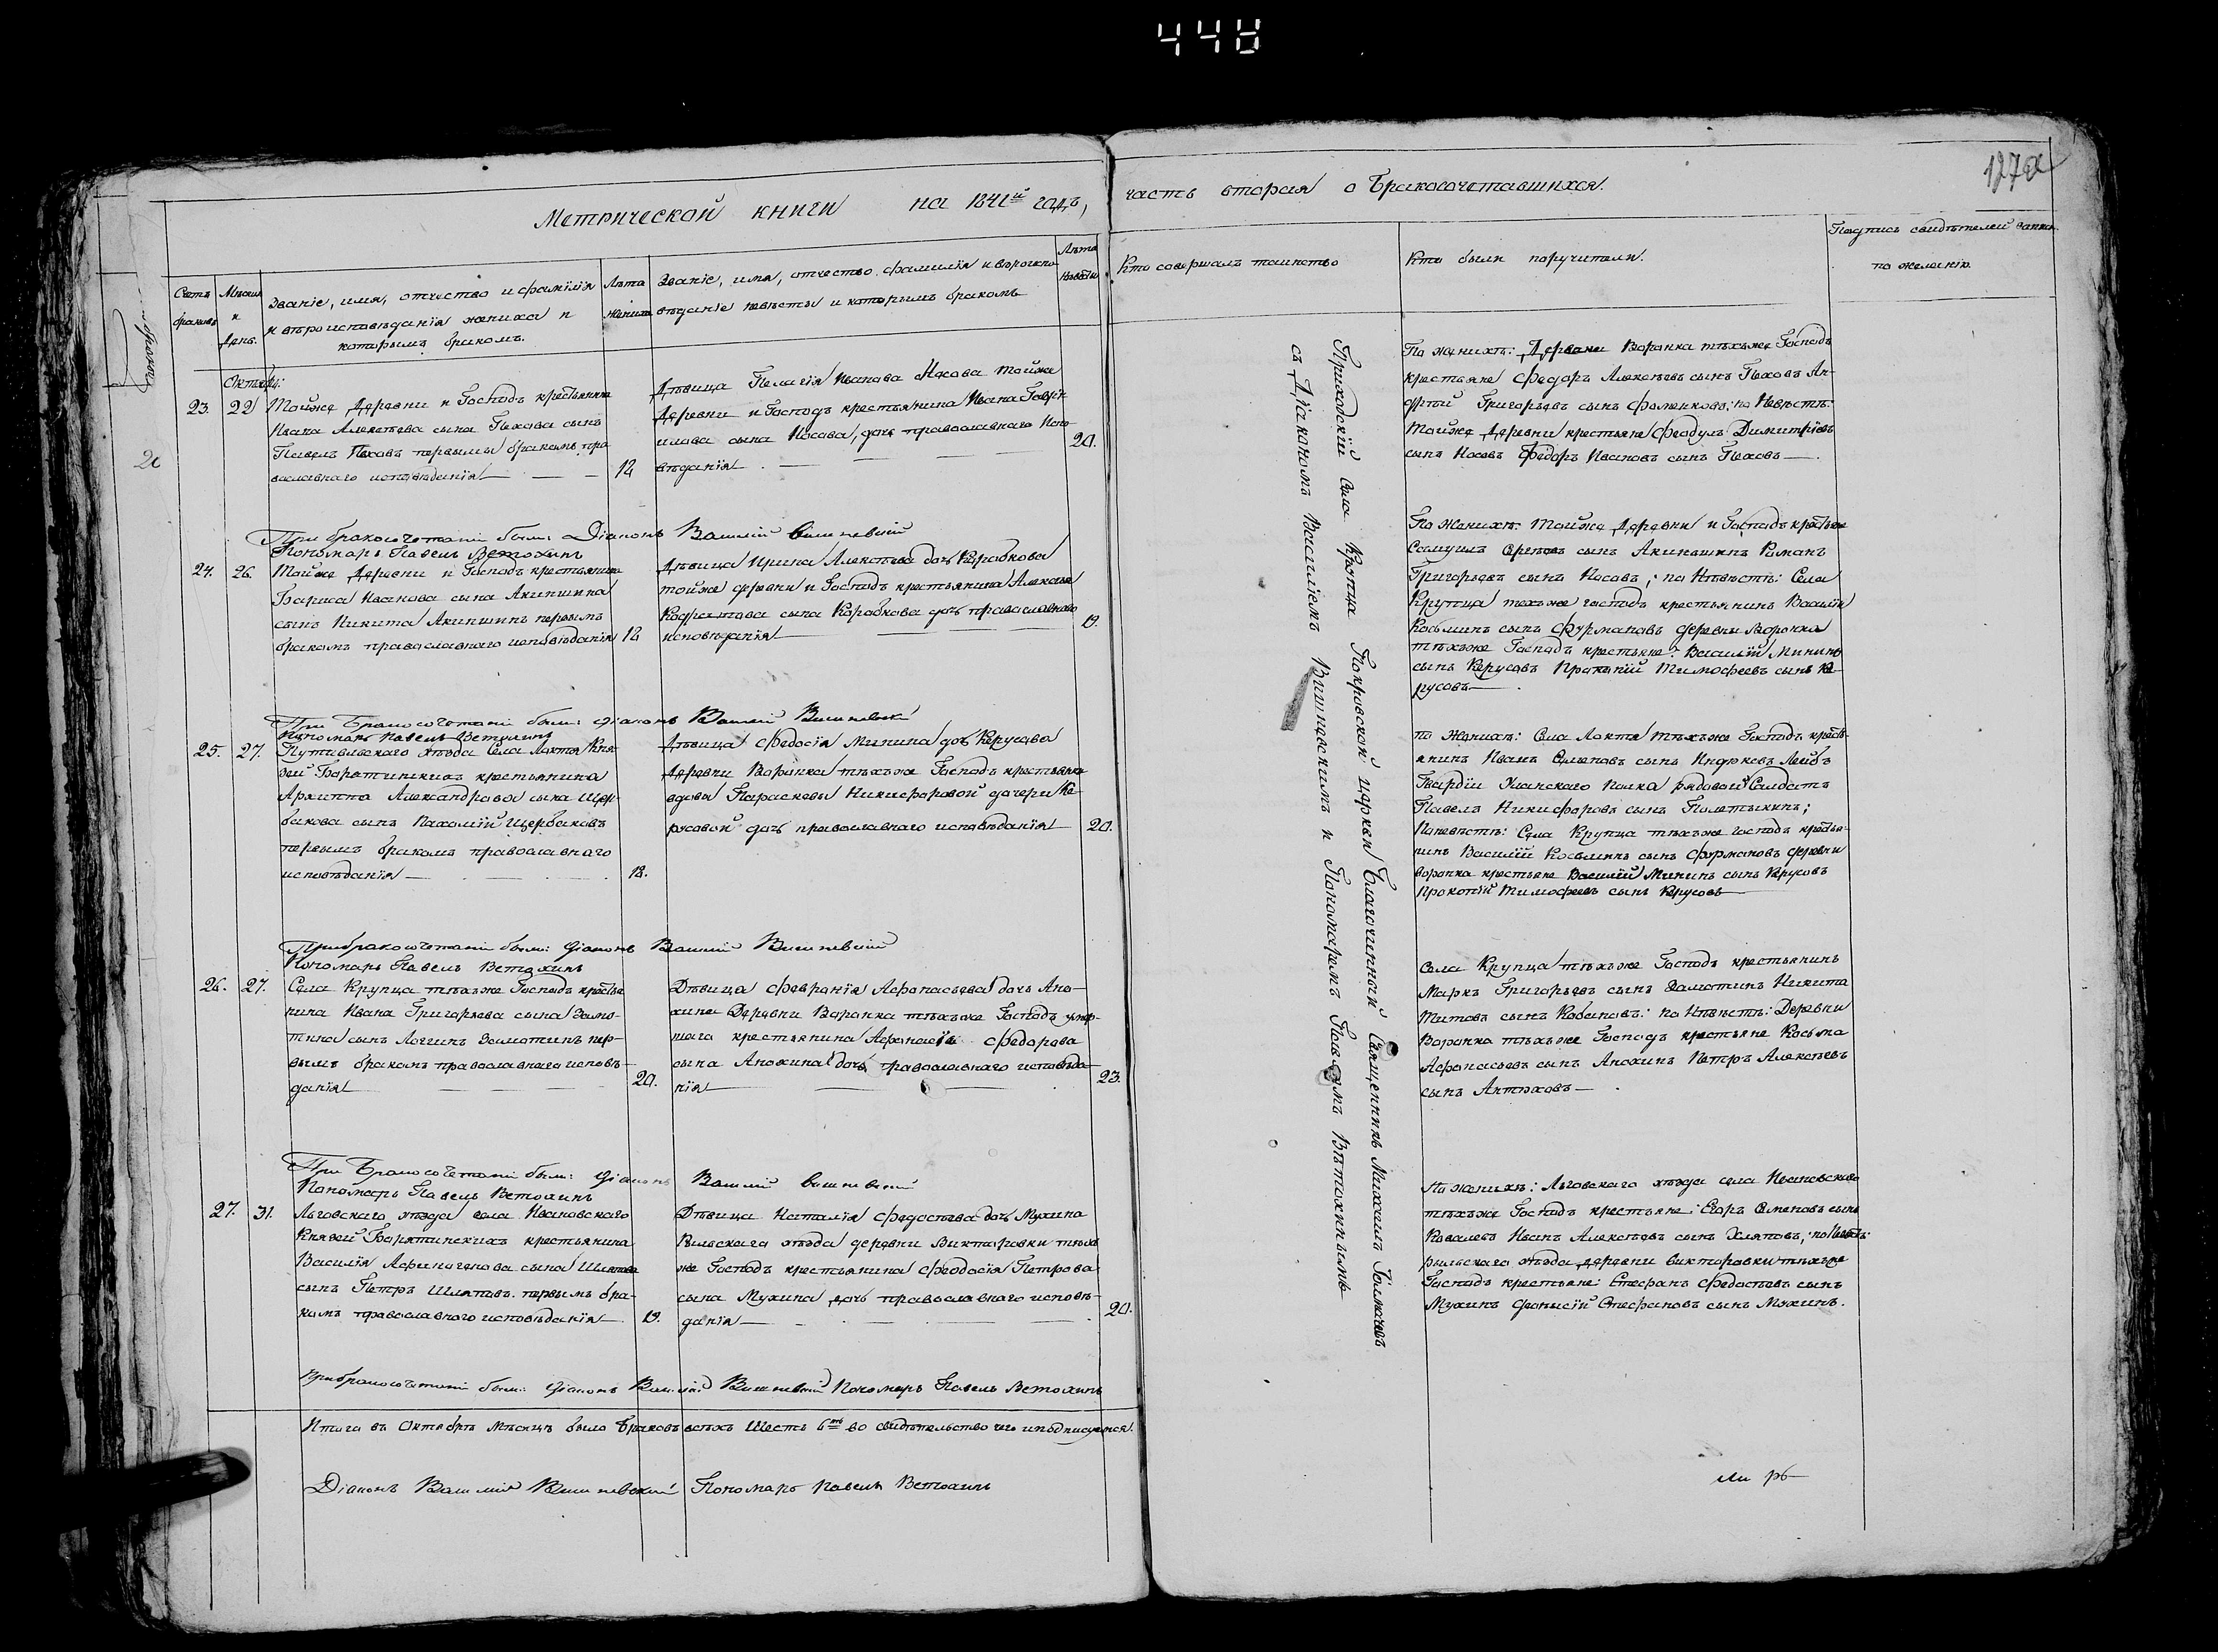 448
127
Метрической книги на 1841й годъ,
часть вторая о Бракосочетавшихся.
Счетъ браковъ
Мѣсяцъ и день.
Званіе, имя, отчество и фамилія
и вѣроисповѣданія жениха и
которымъ бракомъ.
Лѣта жениха
Званіе, имя, отчество фамилія и вѣроиспо-
вѣданіе невѣсты и которымъ бракомъ
Лѣта невѣсты
Кто совершалъ таинство
Кто были поручители.
Подпись свидѣтелей запи
по желанію.
Октябрь:
23. 22
Тойже Деревни и Господъ крестьянина
Ивана Алексѣева сына Пехова сынъ
Павелъ Пеховъ первымъ бракомъ, пра
вославнаго исповѣданія
Дѣвица Пелагія Иванова Носова тойже
Деревни и Господъ крестьянина Ивана Гаврі
илова сына Носова, дочь православнаго испо
вѣданія
20.
По женихѣ: Деревни Воронка тѣхъже Господъ
крестьяне Федоръ Алексѣевъ сынъ Пеховъ
Григорьевъ сынъ Фоменковъ; по Невѣстѣ:
Тойже Деревни крестьяне Феодулъ Димитріевъ
сынъ Носовъ Федоръ Ивановъ сынъ Пеховъ
При бракосочетаніи были: Діаконъ Василій Вишневскій
Пономарь Павелъ Ветохинъ
24. 26.
Тойже Деревни и Господъ крестьянина
Бориса Иванова сына Акиншина
сынъ Никита Акиншинъ первымъ
бракомъ православнаго исповѣданія
Дѣвица Ирина Алексѣева дочь Коробкова
тойже деревни и Господъ крестьянина Алексѣя
сына Коробкова дочь православнаго
исповѣданія
19.
По Женихѣ: Тойже Деревни и Господъ крестьяне
Самуилъ сынъ Акиншинъ Романъ
Григорьевъ сынъ Носовъ; по Невѣстѣ: Села
Крупца техъже господъ крестьянинъ Василій
Косьминъ сынъ Фурмановъ деревни Воронка
тѣхъже Господъ крестьяне: Василій Мининъ
сынъ Керусовъ Прокопій Тимофеевъ сынъ Ке-
русовъ
При Бракосочетаніи были: діаконъ Василій Вишневскій
Пономарь Павелъ Ветохинъ
25. 27.
Путивльскаго уѣзда Села Локтя Кня-
зей Барятинскихъ крестьянина
Архиппа Александрова сына Щер-
бакова сынъ Пахомій Щербаковъ
первымъ бракомъ православнаго
исповѣданія
18.
Дѣвица Федосія Минина дочь Керусова
Деревни Воронка тѣхъже Господъ крестьянки
вдовы Параскевы Никифоровой дочери Ке-
русовой дочь православнаго исповѣданія
20.
по Женихѣ: Села Локтя тѣхъже Господъ кресть-
янинъ Иванъ Семеновъ сынъ Индюковъ Лейбъ
Гвардіи Уланскаго Полка рядовой Солдатъ
Павелъ Никифоровъ сынъ Полетыкинъ;
Поневѣстѣ: Села Крупца тѣхъже господъ крестья-
нинъ Василій Косьминъ сынъ Фурмановъ деревни
воронка крестьяне Василій Мининъ сынъ Керусовъ
Прокопій Тимофеевъ сынъ Керусовъ
Прибракосочетаніи были: діаконъ Василій Вишневскій
Пономарь Павелъ Ветохинъ
26. 27.
Села Крупца тѣхъже Господъ крестья
нина Ивана Григорьева сына Замо-
тина сынъ Логгинъ Замотинъ пер-
вымъ бракомъ православнаго исповѣ-
данія
20.
Дѣвица Февронія Афонасьева дочь Ано-
хина Деревни Воронка тѣхъже Господъ умер-
шаго крестьянина Афонасія Федорова
сына Анохина дочь православнаго исповѣда-
нія
23.
Села Крупца тѣхъже Господъ крестьянинъ
Маркъ Григорьевъ сынъ Замотинъ Никита
Титовъ сынъ по Невѣстѣ: Деревни
Воронка тѣхъже Господъ крестьяне Косьма
Афонасьевъ сынъ Анохинъ Петръ Алексѣевъ
сынъ Антюховъ
При Бракосочетаніи были: діаконъ Василій Вишневскій
Пономарь Павелъ Ветохинъ
27. 31.
Льговскаго уѣзда села Ивановскаго
Князей Барятинскихъ крестьянина
Василія Афиногенова сына
сынъ Петръ первымъ бра-
комъ православнаго исповѣданія
19.
Дѣвица Наталія Федосѣева дочь Мухина
Рыльскаго уѣзда деревни Викторовки тѣхъ
же Господъ крестьянина Феодосія Петрова
сына Мухина дочь православнаго исповѣ-
данія
20.
По женихѣ: Льговскаго уѣзда села Ивановскаго
тѣхъже Господъ крестьяне: Егоръ Семеновъ сынъ
Ковалевъ Иванъ Алексѣевъ сынъ Хляповъ; по Невѣстѣ:
рыльскаго уѣзда деревни викторовки тѣхъже
Господъ крестьяне: Стефанъ Федосѣевъ сынъ
Мухинъ Діонысій Стефановъ сынъ Мухинъ.
Прибракосочетаніи были: діаконъ Василій Вишневскій Пономарь Павелъ Ветохинъ
Итого въ Октябрѣ Мѣсяцѣ было Браковъ всѣхъ Шесть 6ть во свидѣтельство чего иподписуемся.
Діаконъ Василій Вишневскій Пономарь Павелъ Ветохинъ
Приходскій села Крупца Покровской церкви Благочинный Священникъ Михаилъ
съ Діакономъ Василіемъ Вишневскимъ и Пономаремъ Павломъ Ветохинымъ